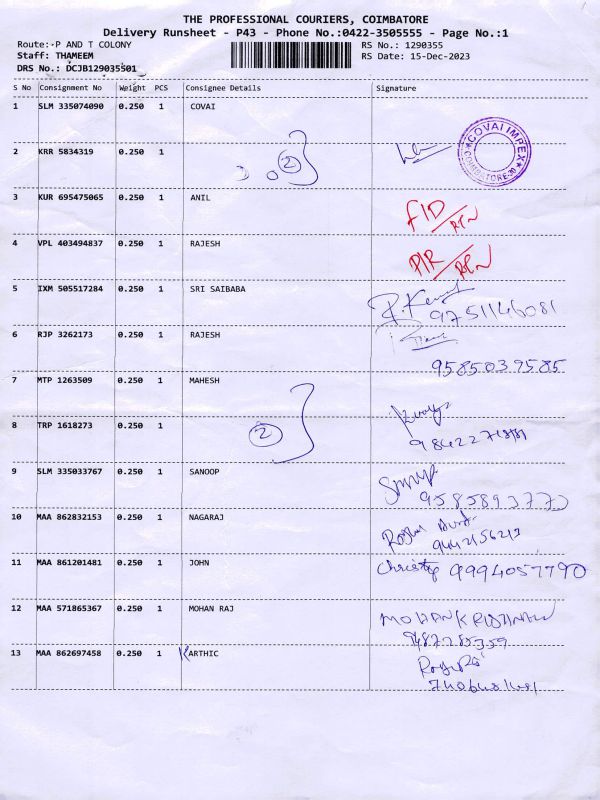 THE PROFESSIONAL COURIERS, COIMBATORE
Delivery Runsheet - P43 - Phone No.:0422-3505555 - Page No.:1
Route: P AND T COLONY RS No.: 1290355
Staff: THAMEEM RS Date: 15-Dec-2023
DRS No.: DCJB129035501
S No Consignment No Weight PCS Consignee Details Signature
1 SLM 335074090 0.250 1 COVAI
COVAI IMPEX
COIMBATORE-30
2 KRR 5834319 0.250 1
2
3 KUR 695475065 0.250 1 ANIL
F/D/RTN
4 VPL 403494837 0.250 1 RAJESH
P/R/RTN
5 IXM 505517284 0.250 1 SRI SAIBABA
9751146081
6 RJP 3262173 0.250 1 RAJESH
9585039585
7 MTP 1263509 0.250 1 MAHESH
8 TRP 1618273 0.250 1
2
9 SLM 335033767 0.250 1 SANOOP
9585893773
10 MAA 862832153 0.250 1 NAGARAJ
11 MAA 861201481 0.250 1 JOHN
Christy 9994057790
12 MAA 571865367 0.250 1 MOHAN RAJ
13 MAA 862697458 0.250 1 KARTHIC